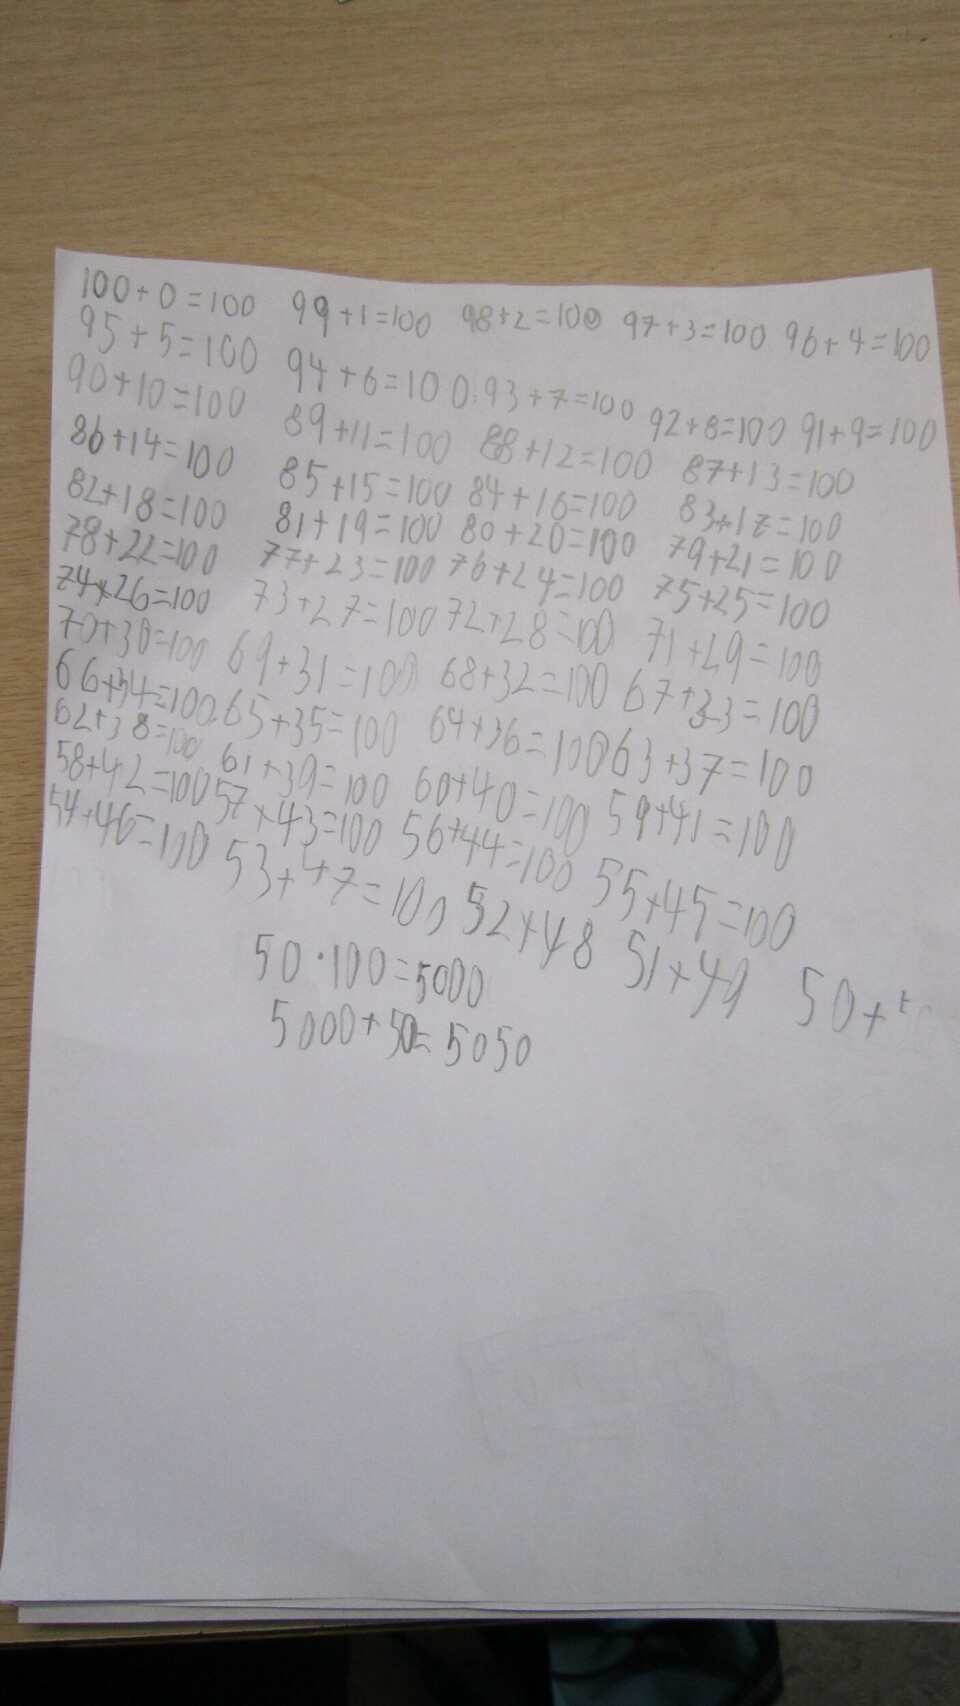 100+0=100 99+1=100 98+2=100 97+3=100 96+4=100
95+5=100 94+6=100 93+7=100 92+8=100 91+9=100
90+10=100 89+11=100 88+12=100 87+13=100
86+14=100 85+15=100 84+16=100 83+17=100
82+18=100 81+19=100 80+20=100 79+21=100
78+22=100 77+23=100 76+24=100 75+25=100
74+26=100 73+27=100 72+28=100 71+29=100
70+30=100 69+31=100 68+32=100 67+33=100
66+34=100 65+35=100 64+36=100 63+37=100
62+38=100 61+39=100 60+40=100 59+41=100
58+42=100 57+43=100 56+44=100 55+45=100
54+46=100 53+47=100 52+48 51+49 50+
50·100=5000
5000+50=5050